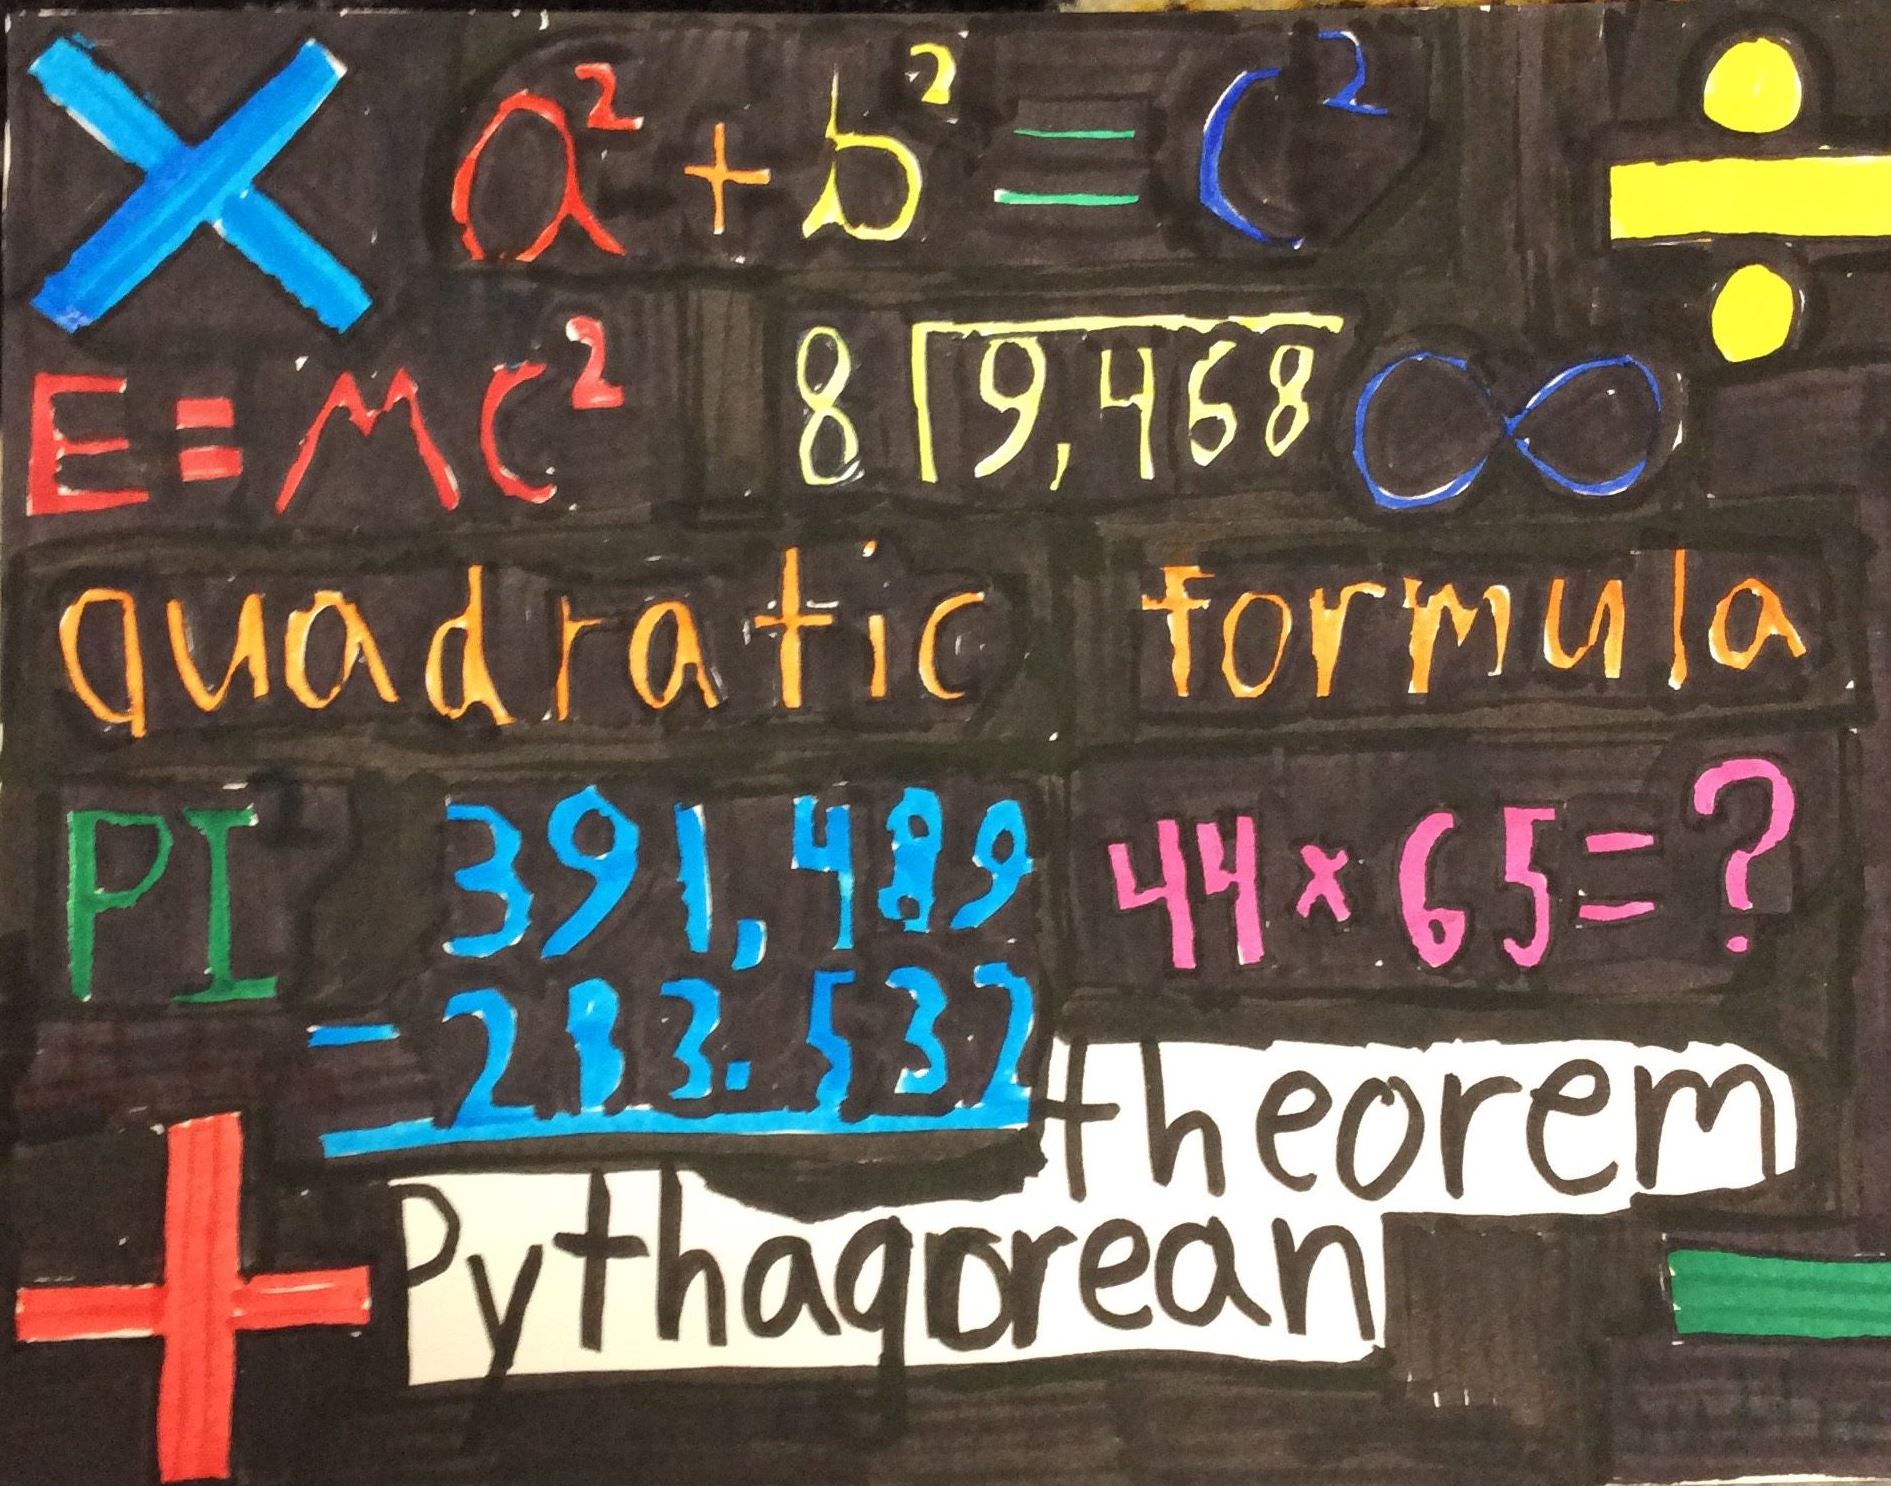 × a² + b² = c² ÷
E = mc² 8⟌9,468 ∞
quadratic formula
PI 391,489 44 × 65 = ?
− 283.532
theorem
+ Pythagorean −